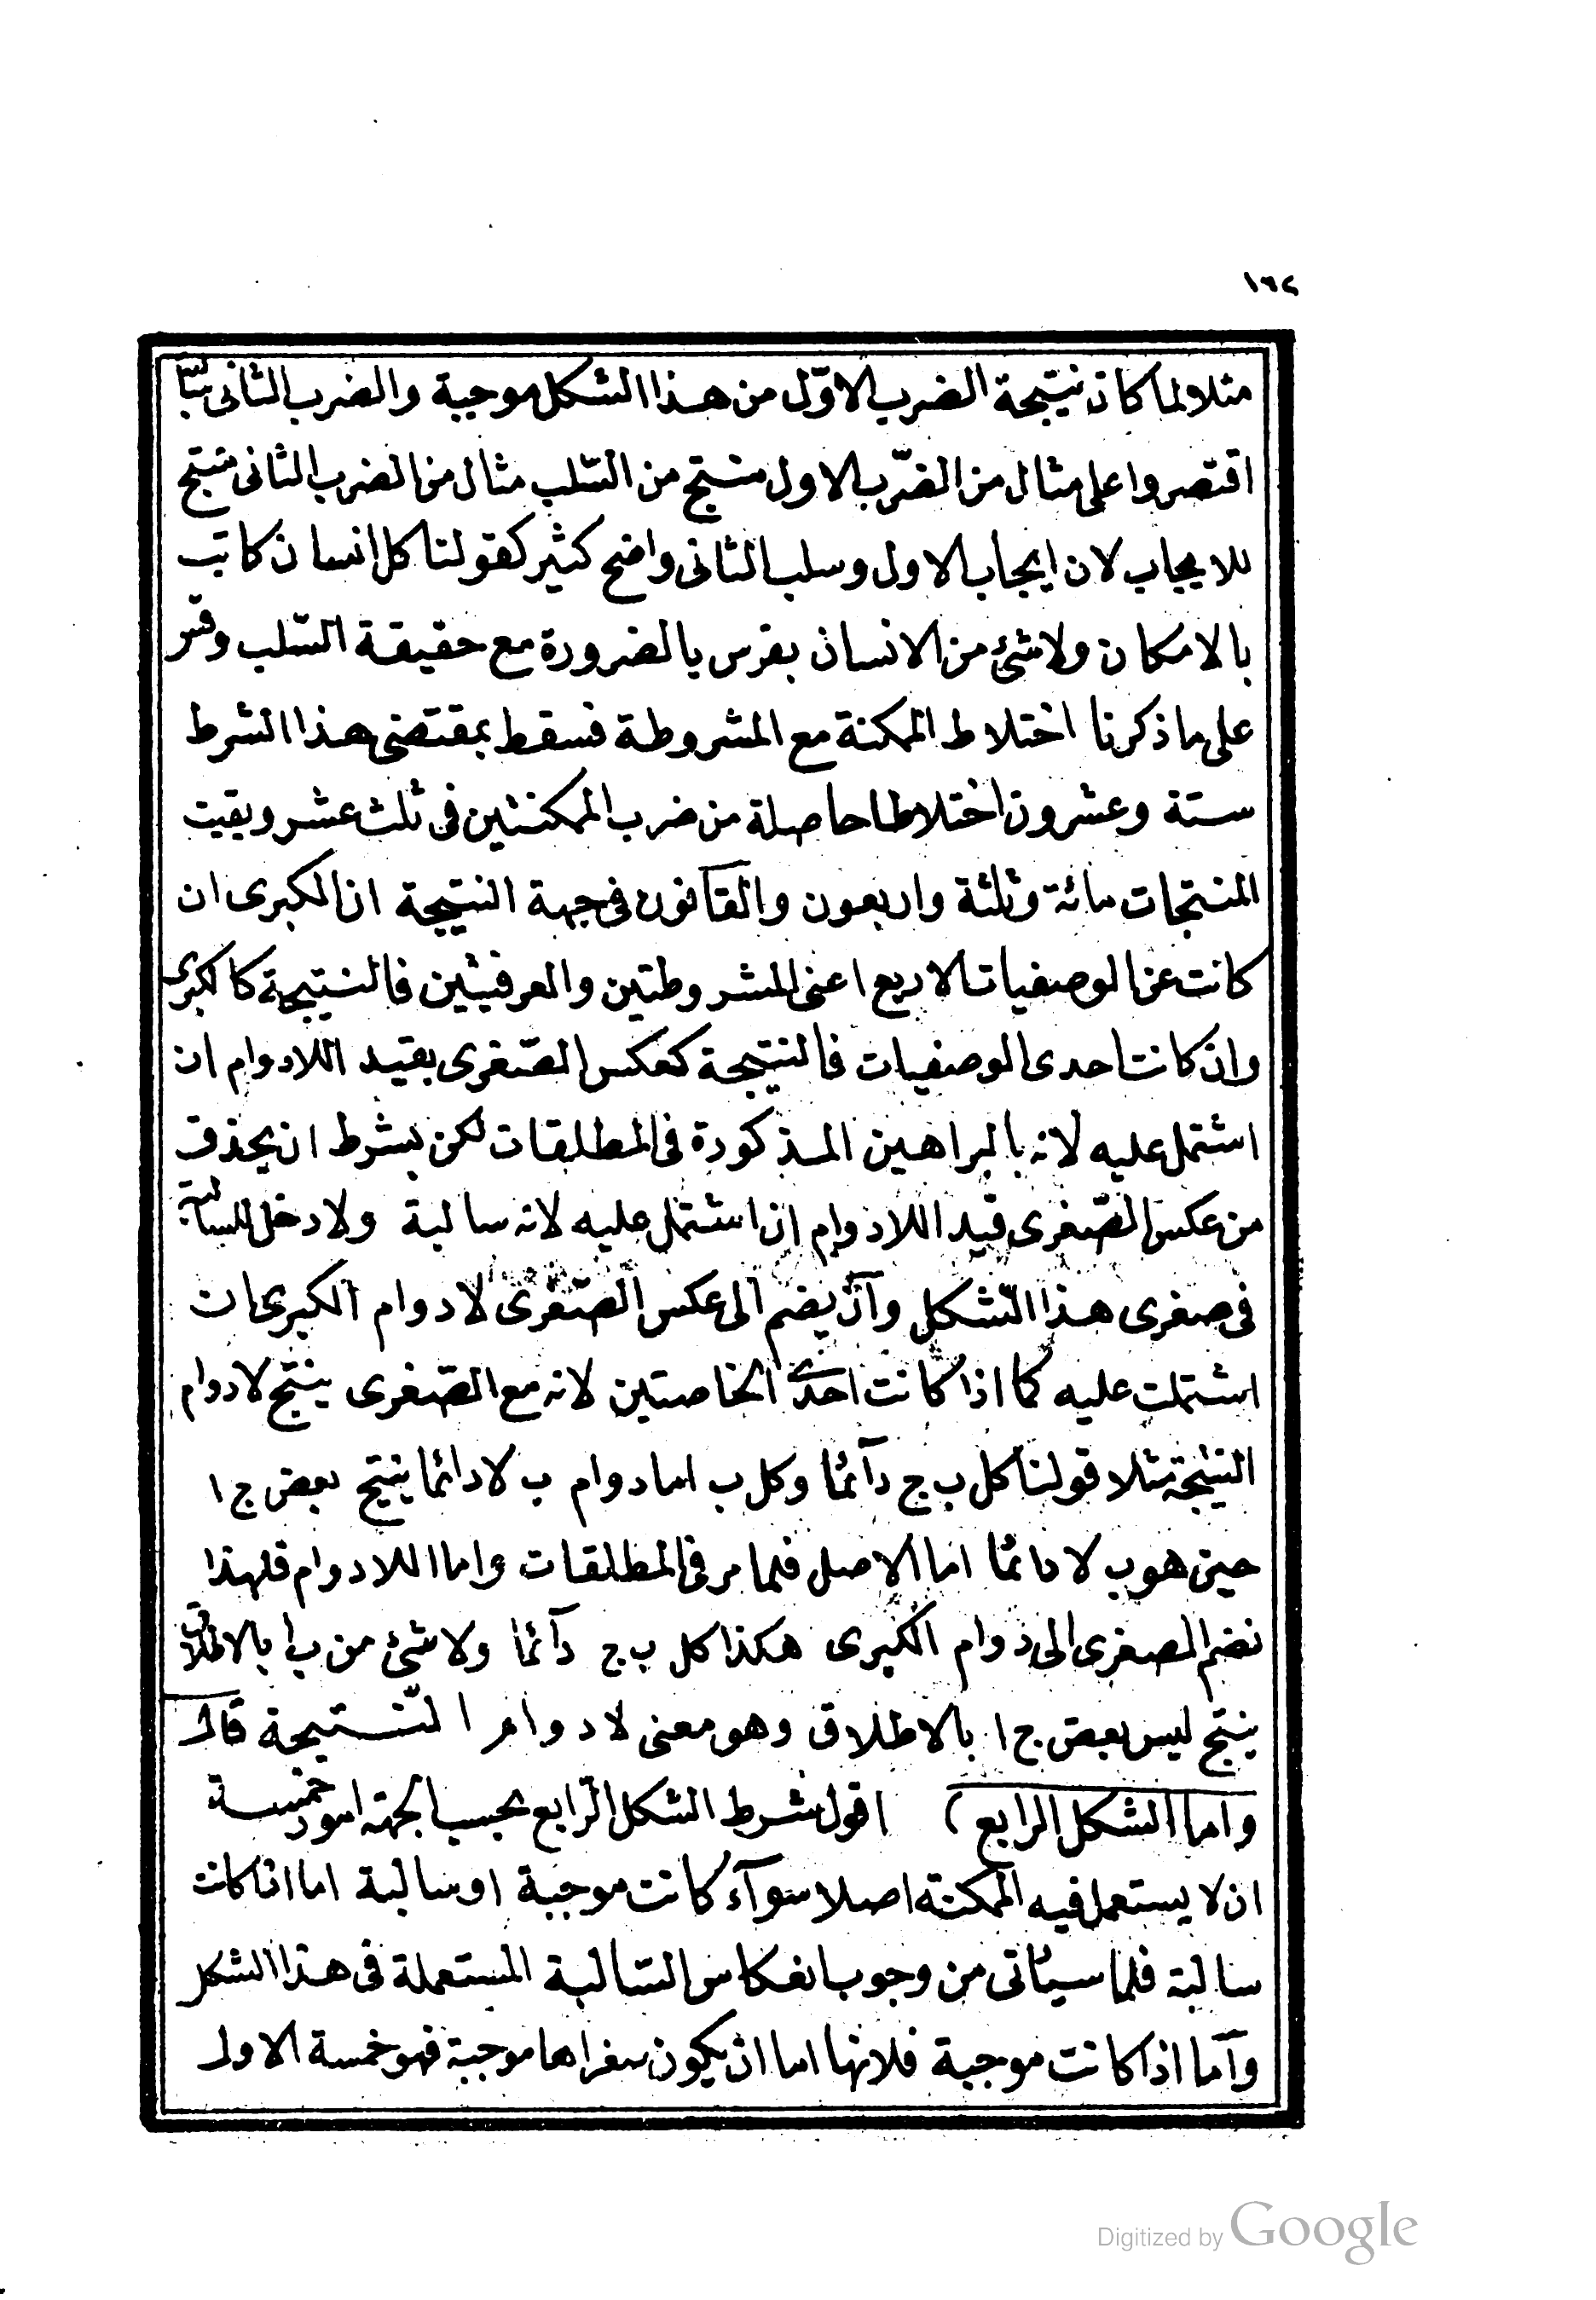 ١٦٢
مثلا لما كان نتيجة الضرب الاوّل من هذا الشكل موجبة والضرب الثانى
اقتصروا على مثال من الضّرب الاول منتج من السّلب مثال من الضرب الثانى منتج
للايجاب لان ايجاب الاول وسلب الثانى واضح كثير كقولنا كل انسان كاتب
بالامكان ولاشئ من الانسان بفرس بالضرورة مع حقيقة السّلب وقس
على ما ذكرنا اختلاط الممكنة مع المشروطة فسقط بمقتضى هذا الشرط
ستة وعشرون اختلاطا حاصلة من ضرب الممكنتين فى ثلث عشر وبقيت
المنتجات مائة وثلثة واربعون والقانون فى جهة النتيجة ان الكبرى ان
كانت عن الوصفيات الاربع اعنى المشروطتين والعرفيتين فالنتيجة كالكبرى
وان كانت احدى الوصفيات فالنتيجة كعكس الصّغرى بقيد اللادوام ان
اشتمل عليه لانه بالبراهين المذكورة فى المطلقات لكن بشرط ان يحذف
من عكس الصّغرى قيد اللادوام ان اشتمل عليه لانه سالبة ولا دخل للسالبة
فى صغرى هذا الشّكل وآن يضم الى عكس الصّغرى لادوام الكبرى ان
اشتملت عليه كما اذا كانت احدى الخاصتين لانه مع الصّغرى ينتج لادوام
النتيجة مثلا قولنا كل ب ج دآئما وكل ب ا مادوام ب لادائما ينتج بعض ج ا
حين هو ب لادائما اما الاصل فلما مر فى المطلقات واما اللادوام فلهذا
نضم الصغرى الى دوام الكبرى هكذا كل ب ج دآئما ولاشئ من ب ا بالاطلاق
ينتج ليس بعض ج ا بالاطلاق وهو معنى لادوام النّتيجة قال
واما الشكل الرابع) اقول شرط الشكل الرّابع بحسب الجهة امور خمسة
ان لا يستعمل فيه الممكنة اصلا سوآء كانت موجبة او سالبة اما اذا كانت
سالبة فلما سيئاتى من وجوب انعكاس السّالبة المستعملة فى هذا الشكل
وآما اذا كانت موجبة فلانها اما ان يكون سغراها موجبة فهو خمسة الاول
Digitized by Google